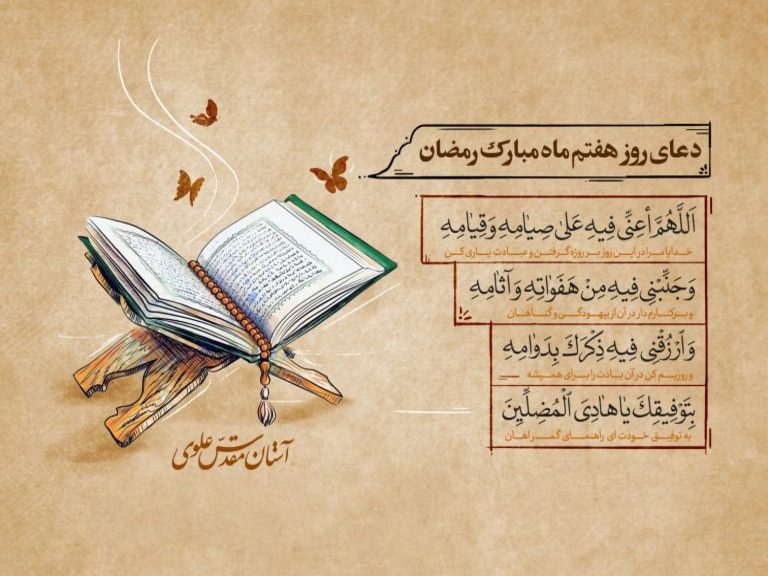 دعای روز هفتم ماه مبارک رمضان
اَللَّهُمَّ أَعِنِّی فِیهِ عَلیٰ صِیٰامِهِ وَ قِیٰامِهِ
خدایا مرا در این روز بر روزه گرفتن و عبادت یاری کن
وَ جَنِّبْنِی فِیهِ مِنْ هَفَوٰاتِهِ وَ آثٰامِهِ
و برکنارم دار در آن از بیهودگی و گناهان
وَ ارْزُقْنِی فِیهِ ذِکْرَكَ بِدَوٰامِهِ
و روزیم کن در آن یادت را برای همیشه
بِتَوْفِیقِكَ یٰا هٰادِیَ الْمُضِلِّینَ
به توفیق خودت ای راهنمای گمراهان
آستان مقدّس علوی